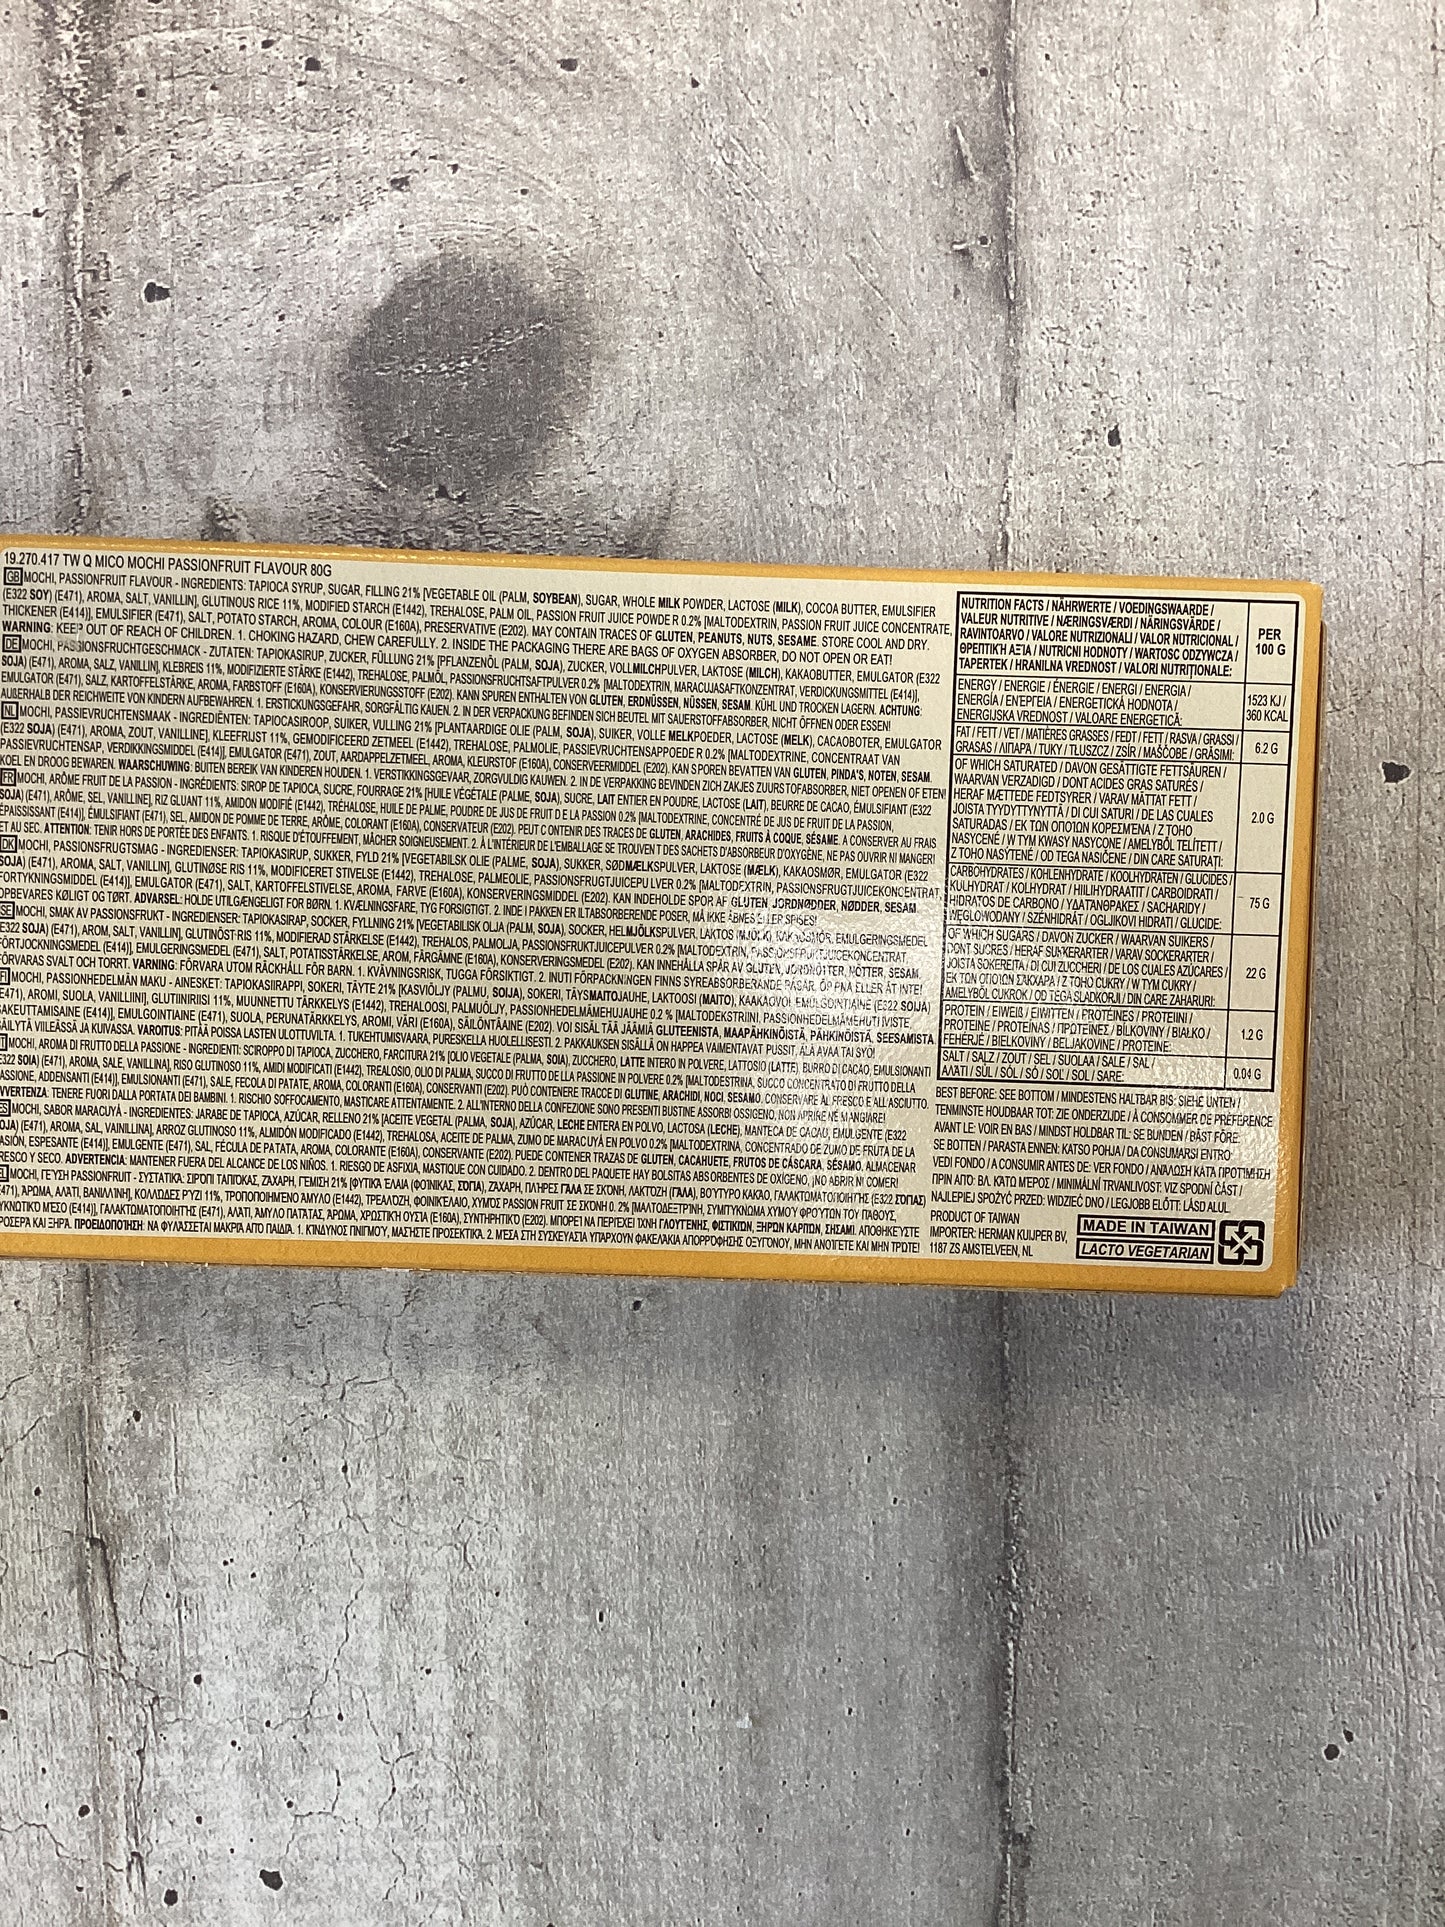 19.270.417 TW Q MICO MOCHI PASSIONFRUIT FLAVOUR 80G
GB MOCHI, PASSIONFRUIT FLAVOUR - INGREDIENTS: TAPIOCA SYRUP, SUGAR, FILLING 21% [VEGETABLE OIL (PALM, SOYBEAN), SUGAR, WHOLE MILK POWDER, LACTOSE (MILK), COCOA BUTTER, EMULSIFIER
(E322 SOY) (E471), AROMA, SALT, VANILLIN], GLUTINOUS RICE 11%, MODIFIED STARCH (E1442), TREHALOSE, PALM OIL, PASSION FRUIT JUICE POWDER 0.2% [MALTODEXTRIN, PASSION FRUIT JUICE CONCENTRATE,
THICKENER (E414)], EMULSIFIER (E471), SALT, POTATO STARCH, AROMA, COLOUR (E160A), PRESERVATIVE (E202). MAY CONTAIN TRACES OF GLUTEN, PEANUTS, NUTS, SESAME. STORE COOL AND DRY.
WARNING: KEEP OUT OF REACH OF CHILDREN. 1. CHOKING HAZARD, CHEW CAREFULLY. 2. INSIDE THE PACKAGING THERE ARE BAGS OF OXYGEN ABSORBER, DO NOT OPEN OR EAT!
DE MOCHI, PASSIONSFRUCHTGESCHMACK - ZUTATEN: TAPIOKASIRUP, ZUCKER, FÜLLUNG 21% [PFLANZENÖL (PALM, SOJA), ZUCKER, VOLLMILCHPULVER, LAKTOSE (MILCH), KAKAOBUTTER, EMULGATOR (E322
SOJA) (E471), AROMA, SALZ, VANILLIN], KLEBREIS 11%, MODIFIZIERTE STÄRKE (E1442), TREHALOSE, PALMÖL, PASSIONSFRUCHTSAFTPULVER 0.2% [MALTODEXTRIN, MARACUJASAFTKONZENTRAT, VERDICKUNGSMITTEL (E414)],
EMULGATOR (E471), SALZ, KARTOFFELSTÄRKE, AROMA, FARBSTOFF (E160A), KONSERVIERUNGSSTOFF (E202). KANN SPUREN ENTHALTEN VON GLUTEN, ERDNÜSSEN, NÜSSEN, SESAM. KÜHL UND TROCKEN LAGERN. ACHTUNG:
AUßERHALB DER REICHWEITE VON KINDERN AUFBEWAHREN. 1. ERSTICKUNGSGEFAHR, SORGFÄLTIG KAUEN. 2. IN DER VERPACKUNG BEFINDEN SICH BEUTEL MIT SAUERSTOFFABSORBER, NICHT ÖFFNEN ODER ESSEN!
NL MOCHI, PASSIEVRUCHTENSMAAK - INGREDIËNTEN: TAPIOCASIROOP, SUIKER, VULLING 21% [PLANTAARDIGE OLIE (PALM, SOJA), SUIKER, VOLLE MELKPOEDER, LACTOSE (MELK), CACAOBOTER, EMULGATOR
(E322 SOJA) (E471), AROMA, ZOUT, VANILLINE], KLEEFRIJST 11%, GEMODIFICEERD ZETMEEL (E1442), TREHALOSE, PALMOLIE, PASSIEVRUCHTENSAPPOEDER 0.2% [MALTODEXTRINE, CONCENTRAAT VAN
PASSIEVRUCHTENSAP, VERDIKKINGSMIDDEL (E414)], EMULGATOR (E471), ZOUT, AARDAPPELZETMEEL, AROMA, KLEURSTOF (E160A), CONSERVEERMIDDEL (E202). KAN SPOREN BEVATTEN VAN GLUTEN, PINDA'S, NOTEN, SESAM.
KOEL EN DROOG BEWAREN. WAARSCHUWING: BUITEN BEREIK VAN KINDEREN HOUDEN. 1. VERSTIKKINGSGEVAAR, ZORGVULDIG KAUWEN. 2. IN DE VERPAKKING BEVINDEN ZICH ZAKJES ZUURSTOFABSORBER, NIET OPENEN OF ETEN!
FR MOCHI, ARÔME FRUIT DE LA PASSION - INGRÉDIENTS: SIROP DE TAPIOCA, SUCRE, FOURRAGE 21% [HUILE VÉGÉTALE (PALME, SOJA), SUCRE, LAIT ENTIER EN POUDRE, LACTOSE (LAIT), BEURRE DE CACAO, ÉMULSIFIANT (E322
SOJA) (E471), ARÔME, SEL, VANILLINE], RIZ GLUANT 11%, AMIDON MODIFIÉ (E1442), TRÉHALOSE, HUILE DE PALME, POUDRE DE JUS DE FRUIT DE LA PASSION 0.2% [MALTODEXTRINE, CONCENTRÉ DE JUS DE FRUIT DE LA PASSION,
ÉPAISSISSANT (E414)], ÉMULSIFIANT (E471), SEL, AMIDON DE POMME DE TERRE, ARÔME, COLORANT (E160A), CONSERVATEUR (E202). PEUT CONTENIR DES TRACES DE GLUTEN, ARACHIDES, FRUITS À COQUE, SÉSAME. A CONSERVER AU FRAIS
ET AU SEC. ATTENTION: TENIR HORS DE PORTÉE DES ENFANTS. 1. RISQUE D'ÉTOUFFEMENT, MÂCHER SOIGNEUSEMENT. 2. À L'INTÉRIEUR DE L'EMBALLAGE SE TROUVENT DES SACHETS D'ABSORBEUR D'OXYGÈNE, NE PAS OUVRIR NI MANGER!
DK MOCHI, PASSIONSFRUGTSMAG - INGREDIENSER: TAPIOKASIRUP, SUKKER, FYLD 21% [VEGETABILSK OLIE (PALME, SOJA), SUKKER, SØDMÆLKSPULVER, LAKTOSE (MÆLK), KAKAOSMØR, EMULGATOR (E322
SOJA) (E471), AROMA, SALT, VANILLIN], GLUTINØSE RIS 11%, MODIFICERET STIVELSE (E1442), TREHALOSE, PALMEOLIE, PASSIONSFRUGTJUICEPULVER 0.2% [MALTODEXTRIN, PASSIONSFRUGTJUICEKONCENTRAT,
FORTYKNINGSMIDDEL (E414)], EMULGATOR (E471), SALT, KARTOFFELSTIVELSE, AROMA, FARVE (E160A), KONSERVERINGSMIDDEL (E202). KAN INDEHOLDE SPOR AF GLUTEN, JORDNØDDER, NØDDER, SESAM.
OPBEVARES KØLIGT OG TØRT. ADVARSEL: HOLDE UTILGÆNGELIGT FOR BØRN. 1. KVÆLNINGSFARE, TYG FORSIGTIGT. 2. INDE I PAKKEN ER ILTABSORBERENDE POSER, MÅ IKKE ÅBNES ELLER SPISES!
SE MOCHI, SMAK AV PASSIONSFRUKT - INGREDIENSER: TAPIOKASIRAP, SOCKER, FYLLNING 21% [VEGETABILSK OLJA (PALM, SOJA), SOCKER, HELMJÖLKSPULVER, LAKTOS (MJÖLK), KAKAOSMÖR, EMULGERINGSMEDEL
E322 SOJA) (E471), AROM, SALT, VANILLIN], GLUTINÖST RIS 11%, MODIFIERAD STÄRKELSE (E1442), TREHALOS, PALMOLJA, PASSIONSFRUKTJUICEPULVER 0.2% [MALTODEXTRIN, PASSIONSFRUKTJUICEKONCENTRAT,
FÖRTJOCKNINGSMEDEL (E414)], EMULGERINGSMEDEL (E471), SALT, POTATISSTÄRKELSE, AROM, FÄRGÄMNE (E160A), KONSERVERINGSMEDEL (E202). KAN INNEHÅLLA SPÅR AV GLUTEN, JORDNÖTTER, NÖTTER, SESAM.
FÖRVARAS SVALT OCH TORRT. VARNING: FÖRVARA UTOM RÄCKHÅLL FÖR BARN. 1. KVÄVNINGSRISK, TUGGA FÖRSIKTIGT. 2. INUTI FÖRPACKNINGEN FINNS SYREABSORBERANDE PÅSAR, ÖPPNA ELLER ÄT INTE!
FI MOCHI, PASSIONHEDELMÄN MAKU - AINESKET: TAPIOKASIIRAPPI, SOKERI, TÄYTE 21% [KASVIÖLJY (PALMU, SOIJA), SOKERI, TÄYSMAITOJAUHE, LAKTOOSI (MAITO), KAAKAOVOI, EMULGOINTIAINE (E322 SOIJA)
E471), AROMI, SUOLA, VANILLIINI], GLUTIINIRIISI 11%, MUUNNETTU TÄRKKELYS (E1442), TREHALOOSI, PALMUÖLJY, PASSIONHEDELMÄMEHUJAUHE 0.2 % [MALTODEKSTRIINI, PASSIONHEDELMÄMEHUTIIVISTE,
SAKEUTTAMISAINE (E414)], EMULGOINTIAINE (E471), SUOLA, PERUNATÄRKKELYS, AROMI, VÄRI (E160A), SÄILÖNTÄAINE (E202). VOI SISÄLTÄÄ JÄÄMIÄ GLUTEENISTA, MAAPÄHKINÖISTÄ, PÄHKINÖISTÄ, SEESAMISTA.
SÄILYTÄ VIILEÄSSÄ JA KUIVASSA. VAROITUS: PITÄÄ POISSA LASTEN ULOTTUVILTA. 1. TUKEHTUMISVAARA, PURESKELLA HUOLELLISESTI. 2. PAKKAUKSEN SISÄLLÄ ON HAPPEA VAIMENTAVAT PUSSIT, ÄLÄ AVAA TAI SYÖ!
MOCHI, AROMA DI FRUTTO DELLA PASSIONE - INGREDIENTI: SCIROPPO DI TAPIOCA, ZUCCHERO, FARCITURA 21% [OLIO VEGETALE (PALMA, SOIA), ZUCCHERO, LATTE INTERO IN POLVERE, LATTOSIO (LATTE), BURRO DI CACAO, EMULSIONANTI
E322 SOIA) (E471), AROMA, SALE, VANILLINA], RISO GLUTINOSO 11%, AMIDI MODIFICATI (E1442), TREALOSIO, OLIO DI PALMA, SUCCO DI FRUTTO DELLA PASSIONE IN POLVERE 0.2% [MALTODESTRINA, SUCCO CONCENTRATO DI FRUTTO DELLA
PASSIONE, ADDENSANTI (E414)], EMULSIONANTI (E471), SALE, FECOLA DI PATATE, AROMA, COLORANTI (E160A), CONSERVANTI (E202). PUÒ CONTENERE TRACCE DI GLUTINE, ARACHIDI, NOCI, SESAMO. CONSERVARE AL FRESCO E ALL'ASCIUTTO.
AVVERTENZA: TENERE FUORI DALLA PORTATA DEI BAMBINI. 1. RISCHIO SOFFOCAMENTO, MASTICARE ATTENTAMENTE. 2. ALL'INTERNO DELLA CONFEZIONE SONO PRESENTI BUSTINE ASSORBI OSSIGENO, NON APRIRE NÉ MANGIARE!
ES MOCHI, SABOR MARACUYÁ - INGREDIENTES: JARABE DE TAPIOCA, AZÚCAR, RELLENO 21% [ACEITE VEGETAL (PALMA, SOJA), AZÚCAR, LECHE ENTERA EN POLVO, LACTOSA (LECHE), MANTECA DE CACAO, EMULGENTE (E322
SOJA) (E471), AROMA, SAL, VAINILLINA], ARROZ GLUTINOSO 11%, ALMIDÓN MODIFICADO (E1442), TREHALOSA, ACEITE DE PALMA, ZUMO DE MARACUYÁ EN POLVO 0.2% [MALTODEXTRINA, CONCENTRADO DE ZUMO DE FRUTA DE LA
PASIÓN, ESPESANTE (E414)], EMULGENTE (E471), SAL, FÉCULA DE PATATA, AROMA, COLORANTE (E160A), CONSERVANTE (E202). PUEDE CONTENER TRAZAS DE GLUTEN, CACAHUETE, FRUTOS DE CÁSCARA, SÉSAMO. ALMACENAR
FRESCO Y SECO. ADVERTENCIA: MANTENER FUERA DEL ALCANCE DE LOS NIÑOS. 1. RIESGO DE ASFIXIA, MASTIQUE CON CUIDADO. 2. DENTRO DEL PAQUETE HAY BOLSITAS ABSORBENTES DE OXÍGENO, ¡NO ABRIR NI COMER!
MOCHI, ΓΕΥΣΗ PASSIONFRUIT - ΣΥΣΤΑΤΙΚΑ: ΣΙΡΟΠΙ ΤΑΠΙΟΚΑΣ, ΖΑΧΑΡΗ, ΓΕΜΙΣΗ 21% [ΦΥΤΙΚΑ ΕΛΑΙΑ (ΦΟΙΝΙΚΑΣ, ΣΟΓΙΑ), ΖΑΧΑΡΗ, ΠΛΗΡΕΣ ΓΑΛΑ ΣΕ ΣΚΟΝΗ, ΛΑΚΤΟΖΗ (ΓΑΛΑ), ΒΟΥΤΥΡΟ ΚΑΚΑΟ, ΓΑΛΑΚΤΩΜΑΤΟΠΟΙΗΤΗΣ (E322 ΣΟΓΙΑΣ)
E471), ΑΡΩΜΑ, ΑΛΑΤΙ, ΒΑΝΙΛΛΙΝΗ], ΚΟΛΛΩΔΕΣ ΡΥΖΙ 11%, ΤΡΟΠΟΠΟΙΗΜΕΝΟ ΑΜΥΛΟ (E1442), ΤΡΕΑΛΟΖΗ, ΦΟΙΝΙΚΕΛΑΙΟ, ΧΥΜΟΣ PASSION FRUIT ΣΕ ΣΚΟΝΗ 0.2% [ΜΑΛΤΟΔΕΞΤΡΙΝΗ, ΣΥΜΠΥΚΝΩΜΑ ΧΥΜΟΥ ΦΡΟΥΤΩΝ ΤΟΥ ΠΑΘΟΥΣ,
ΠΥΚΝΩΤΙΚΟ ΜΕΣΟ (E414)], ΓΑΛΑΚΤΩΜΑΤΟΠΟΙΗΤΗΣ (E471), ΑΛΑΤΙ, ΑΜΥΛΟ ΠΑΤΑΤΑΣ, ΑΡΩΜΑ, ΧΡΩΣΤΙΚΗ ΟΥΣΙΑ (E160A), ΣΥΝΤΗΡΗΤΙΚΟ (E202). ΜΠΟΡΕΙ ΝΑ ΠΕΡΙΕΧΕΙ ΙΧΝΗ ΓΛΟΥΤΕΝΗΣ, ΦΙΣΤΙΚΙΩΝ, ΞΗΡΩΝ ΚΑΡΠΩΝ, ΣΗΣΑΜΙ. ΑΠΟΘΗΚΕΥΣΤΕ
ΔΡΟΣΕΡΑ ΚΑΙ ΞΗΡΑ. ΠΡΟΕΙΔΟΠΟΙΗΣΗ: ΝΑ ΦΥΛΑΣΣΕΤΑΙ ΜΑΚΡΙΑ ΑΠΟ ΠΑΙΔΙΑ. 1. ΚΙΝΔΥΝΟΣ ΠΝΙΓΜΟΥ, ΜΑΣΗΣΤΕ ΠΡΟΣΕΚΤΙΚΑ. 2. ΜΕΣΑ ΣΤΗ ΣΥΣΚΕΥΑΣΙΑ ΥΠΑΡΧΟΥΝ ΦΑΚΕΛΑΚΙΑ ΑΠΟΡΡΟΦΗΣΗΣ ΟΞΥΓΟΝΟΥ, ΜΗΝ ΑΝΟΙΓΕΤΕ ΚΑΙ ΜΗΝ ΤΡΩΤΕ!
NUTRITION FACTS / NÄHRWERTE / VOEDINGSWAARDE /
VALEUR NUTRITIVE / NÆRINGSVÆRDI / NÄRINGSVÄRDE /
RAVINTOARVO / VALORE NUTRIZIONALI / VALOR NUTRICIONAL /
ΘΡΕΠΤΙΚΉ ΑΞΊΑ / NUTRIČNI HODNOTY / WARTOSC ODZYWCZA /
TAPERTEK / HRANILNA VREDNOST / VALORI NUTRIȚIONALE:
PER
100 G
ENERGY / ENERGIE / ÉNERGIE / ENERGI / ENERGIA /
ENERGÍA / ΕΝΕΡΓΕΙΑ / ENERGETICKÁ HODNOTA /
ENERGIJSKA VREDNOST / VALOARE ENERGETICĂ:
1523 KJ /
360 KCAL
FAT / FETT / VET / MATIÈRES GRASSES / FEDT / FETT / RASVA / GRASSI /
GRASAS / ΛΙΠΑΡΑ / TUKY / TŁUSZCZ / ZSÍR / MAŠČOBE / GRĂSIMI:
6.2 G
OF WHICH SATURATED / DAVON GESÄTTIGTE FETTSÄUREN /
WAARVAN VERZADIGD / DONT ACIDES GRAS SATURÉS /
HERAF MÆTTEDE FEDTSYRER / VARAV MÄTTAT FETT /
JOISTA TYYDYTTYNYTTÄ / DI CUI SATURI / DE LAS CUALES
SATURADAS / ΕΚ ΤΩΝ ΟΠΟΙΩΝ ΚΟΡΕΣΜΕΝΑ / Z TOHO
NASYCENÉ / W TYM KWASY NASYCONE / AMELYBŐL TELÍTETT /
Z TOHO NASÝTENÉ / OD TEGA NASIČENE / DIN CARE SATURATI:
2.0 G
CARBOHYDRATES / KOHLENHYDRATE / KOOLHYDRATEN / GLUCIDES /
KULHYDRAT / KOLHYDRAT / HIILIHYDRAATIT / CARBOIDRATI /
HIDRATOS DE CARBONO / ΥΔΑΤΑΝΘΡΑΚΕΣ / SACHARIDY /
WĘGLOWODANY / SZÉNHIDRÁT / OGLJIKOVI HIDRATI / GLUCIDE:
75 G
OF WHICH SUGARS / DAVON ZUCKER / WAARVAN SUIKERS /
DONT SUCRES / HERAF SUKKERARTER / VARAV SOCKERARTER /
JOISTA SOKEREITA / DI CUI ZUCCHERI / DE LOS CUALES AZÚCARES /
ΕΚ ΤΩΝ ΟΠΟΙΩΝ ΣΑΚΧΑΡΑ / Z TOHO CUKRY / W TYM CUKRY /
AMELYBŐL CUKROK / OD TEGA SLADKORJI / DIN CARE ZAHARURI:
22 G
PROTEIN / EIWEIß / EIWITTEN / PROTÉINES / PROTEIINI /
PROTEINE / PROTEÍNAS / ΠΡΩΤΕΪΝΕΣ / BÍLKOVINY / BIAŁKO /
FEHÉRJE / BIELKOVÍNY / BELJAKOVINE / PROTEINE:
1.2 G
SALT / SALZ / ZOUT / SEL / SUOLAA / SALE / SAL /
ΑΛΑΤΙ / SŮL / SÓL / SÓ / SOĽ / SOL / SARE:
0.04 G
BEST BEFORE: SEE BOTTOM / MINDESTENS HALTBAR BIS: SIEHE UNTEN /
TENMINSTE HOUDBAAR TOT: ZIE ONDERZIJDE / À CONSOMMER DE PRÉFÉRENCE
AVANT LE: VOIR EN BAS / MINDST HOLDBAR TIL: SE BUNDEN / BÄST FÖRE:
SE BOTTEN / PARASTA ENNEN: KATSO POHJA / DA CONSUMARSI ENTRO:
VEDI FONDO / A CONSUMIR ANTES DE: VER FONDO / ΑΝΑΛΩΣΗ ΚΑΤΑ ΠΡΟΤΙΜΗΣΗ
ΠΡΙΝ ΑΠΟ: ΒΛ. ΚΑΤΩ ΜΕΡΟΣ / MINIMÁLNÍ TRVANLIVOST: VIZ SPODNÍ ČÁST /
NAJLEPIEJ SPOŻYĆ PRZED: WIDZIEĆ DNO / LEGJOBB ELŐTT: LÁSD ALUL.
PRODUCT OF TAIWAN
IMPORTER: HERMAN KUIJPER BV,
1187 ZS AMSTELVEEN, NL
MADE IN TAIWAN
LACTO VEGETARIAN